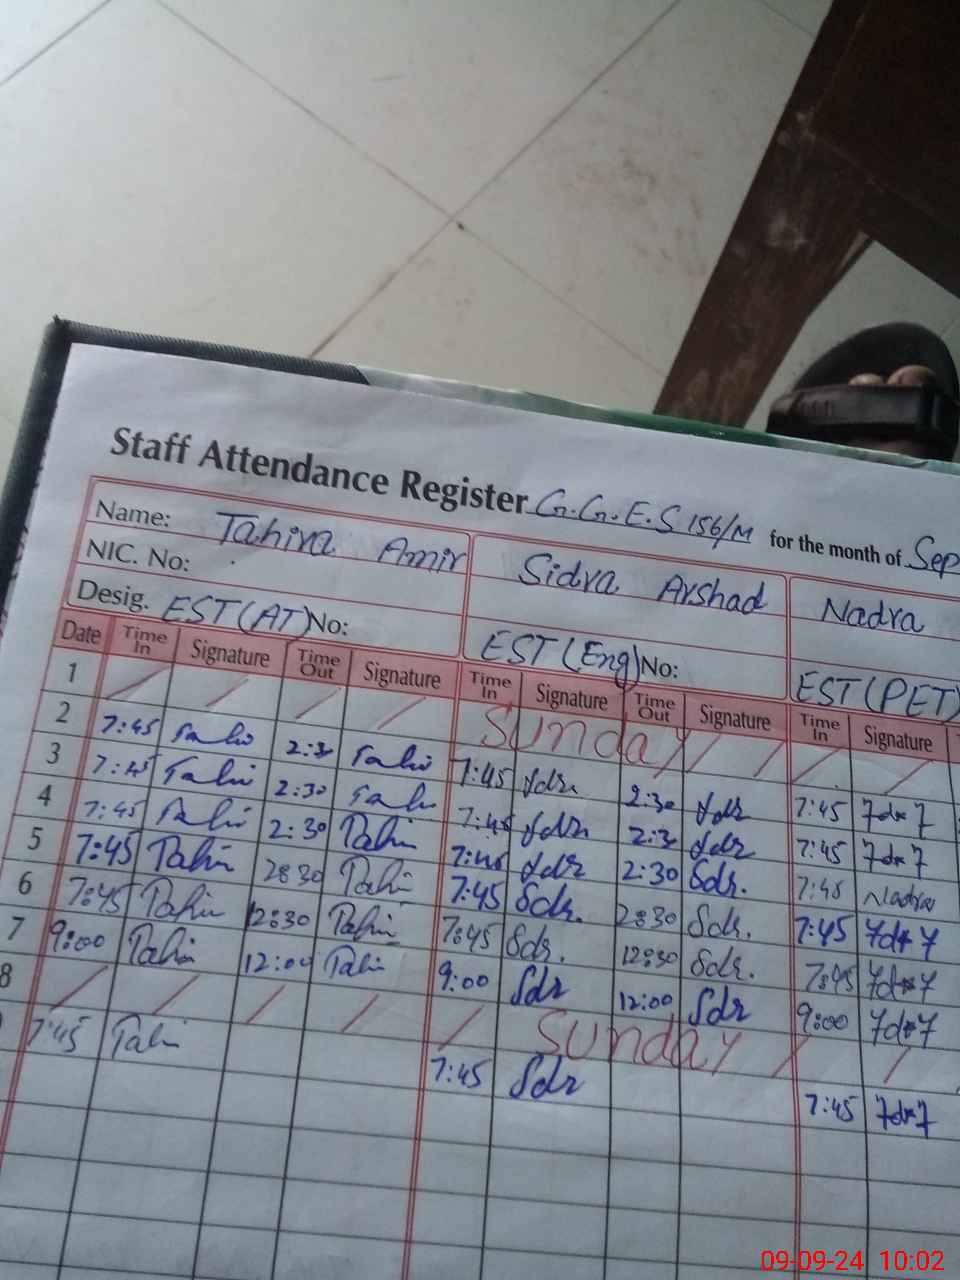 Staff Attendance Register G.G.E.S 156/M for the month of Sep
Name: Tahira Amir Sidra Arshad Nadra
NIC. No:
Desig. EST(AT) No: EST(Eng) No: EST(PET)
Date Time In Signature Time Out Signature Time In Signature Time Out Signature Time In Signature
1 Sunday
2 7:45 Tahi 2:30 Tahi 7:45 Sdr. 2:30 Sdr 7:45
3 7:45 Tahi 2:30 Tahi 7:45 Sdr 2:30 Sdr 7:45
4 7:45 Tahi 2:30 Tahi 7:45 Sdr 2:30 Sdr. 7:45 Nadra
5 7:45 Tahi 2:30 Tahi 7:45 Sdr. 2:30 Sdr. 7:45
6 7:45 Tahi 12:30 Tahi 7:45 Sdr. 12:30 Sdr. 7:45
7 9:00 Tahi 12:00 Tahi 9:00 Sdr 12:00 Sdr 9:00
8 Sunday
7:45 Tahi 7:45 Sdr 7:45
09-09-24 10:02